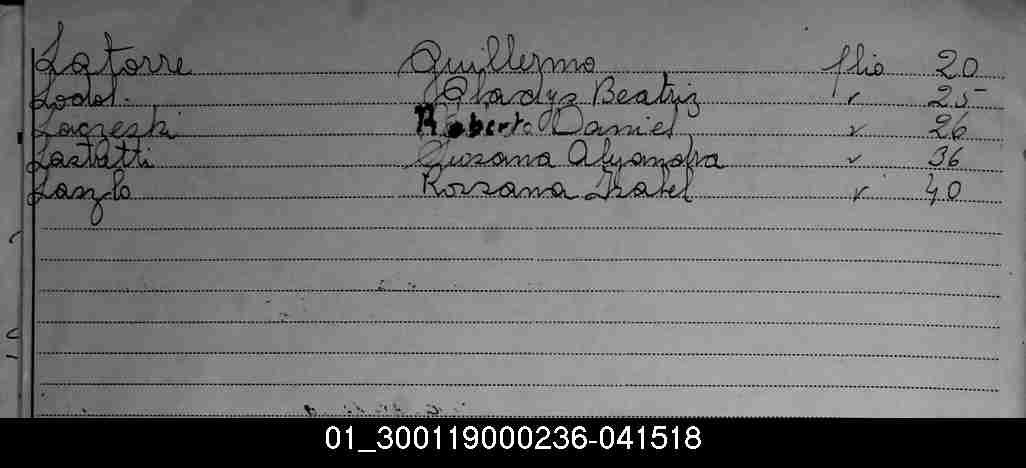 Latorre Guillermo flio 20
Lodol. Gladys Beatriz " 25
Laczeski Roberto Daniel " 26
Lastatti Susana Alejandra " 36
Laszlo Rossana Isabel " 40
01_300119000236-041518